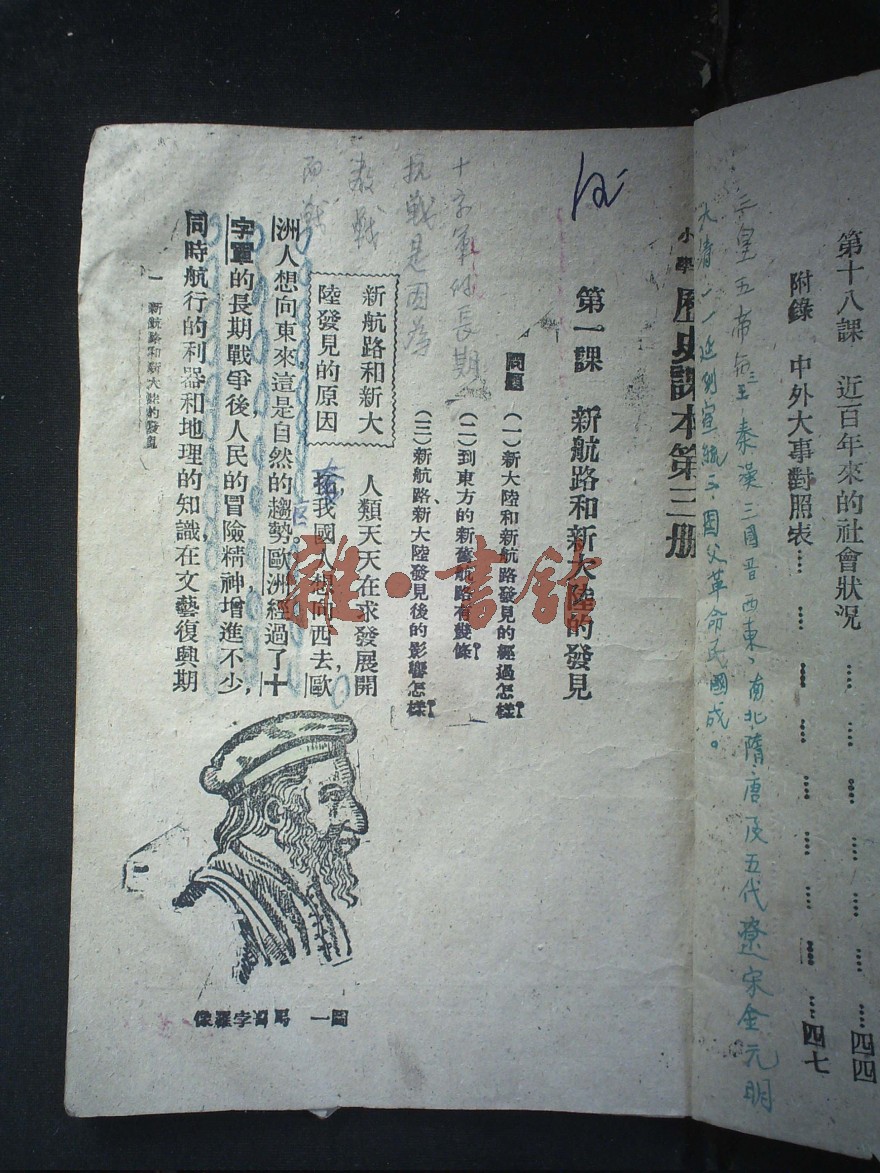 第十八課 近百年來的社會狀況 …… 四四
附錄 中外大事對照表 …… 四七
三皇五帝 三王秦漢三國晋西東、南北隋唐及五代遼宋金元明
大清一一近倒宣統三．國父革命民國成。
小學歷史課本第三册
第一課 新航路和新大陸的發見
問題 (一)新大陸和新航路發見的經過怎樣？
(二)到東方的新舊航路有幾條？
(三)新航路、新大陸發見後的影響怎樣？
十字軍的長期
抗戰是因為
教戰
而戰
新航路和新大
陸發見的原因
人類天天在求發展開
拓，我國人想向西去，歐
洲人想向東來這是自然的趨勢。歐洲經過了十
字軍的長期戰爭後人民的冒險精神增進不少，
同時航行的利器和地理的知識在文藝復興期
一 新航路和新大陸的發見
圖一 馬哥孛羅像
雜·書館